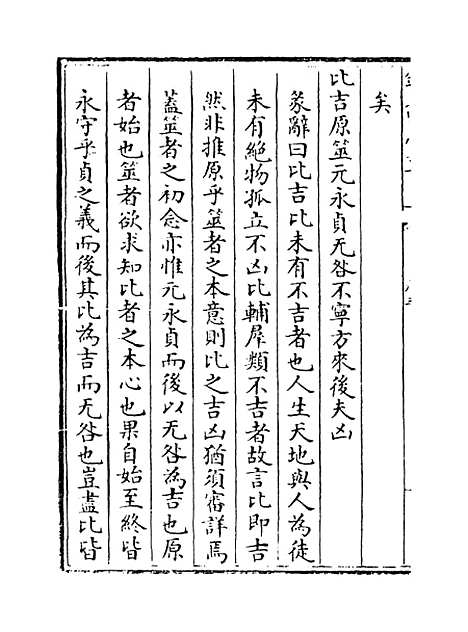 矣
比吉原筮元永貞无咎不寧方來後夫凶
彖辭曰比吉比未有不吉者也人生天地與人為徒
未有絶物孤立不凶比輔羣類不吉者故言比即吉
然非推原乎筮者之本意則比之吉凶猶須審詳焉
葢筮者之初念亦惟元永貞而後以无咎為吉也原
者始也筮者欲求知比者之本心也果自始至終皆
永守乎貞之義而後其比為吉而无咎也豈盡比皆